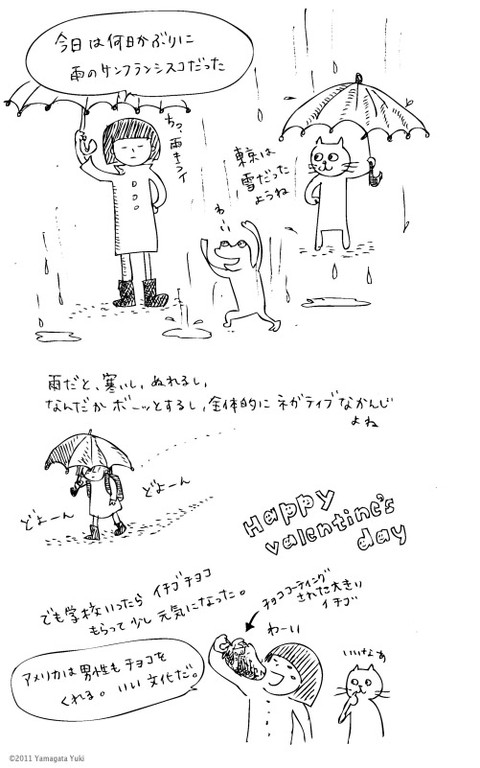 今日は何日かぶりに
雨のサンフランシスコだった
ちっ、雨キライ
東京は
雪だった
ようね
わーい
雨だと、寒いし、ぬれるし、
なんだかボーッとするし、全体的にネガティブなかんじ
よね
どよーん
どよーん
Happy
valentine's
day
でも学校いったらイチゴチョコ
もらって少し元気になった。
チョココーティング
された大きい
イチゴ
わーい
いいなぁ
アメリカは男性もチョコを
くれる。いい文化だ。
©2011 Yamagata Yuki